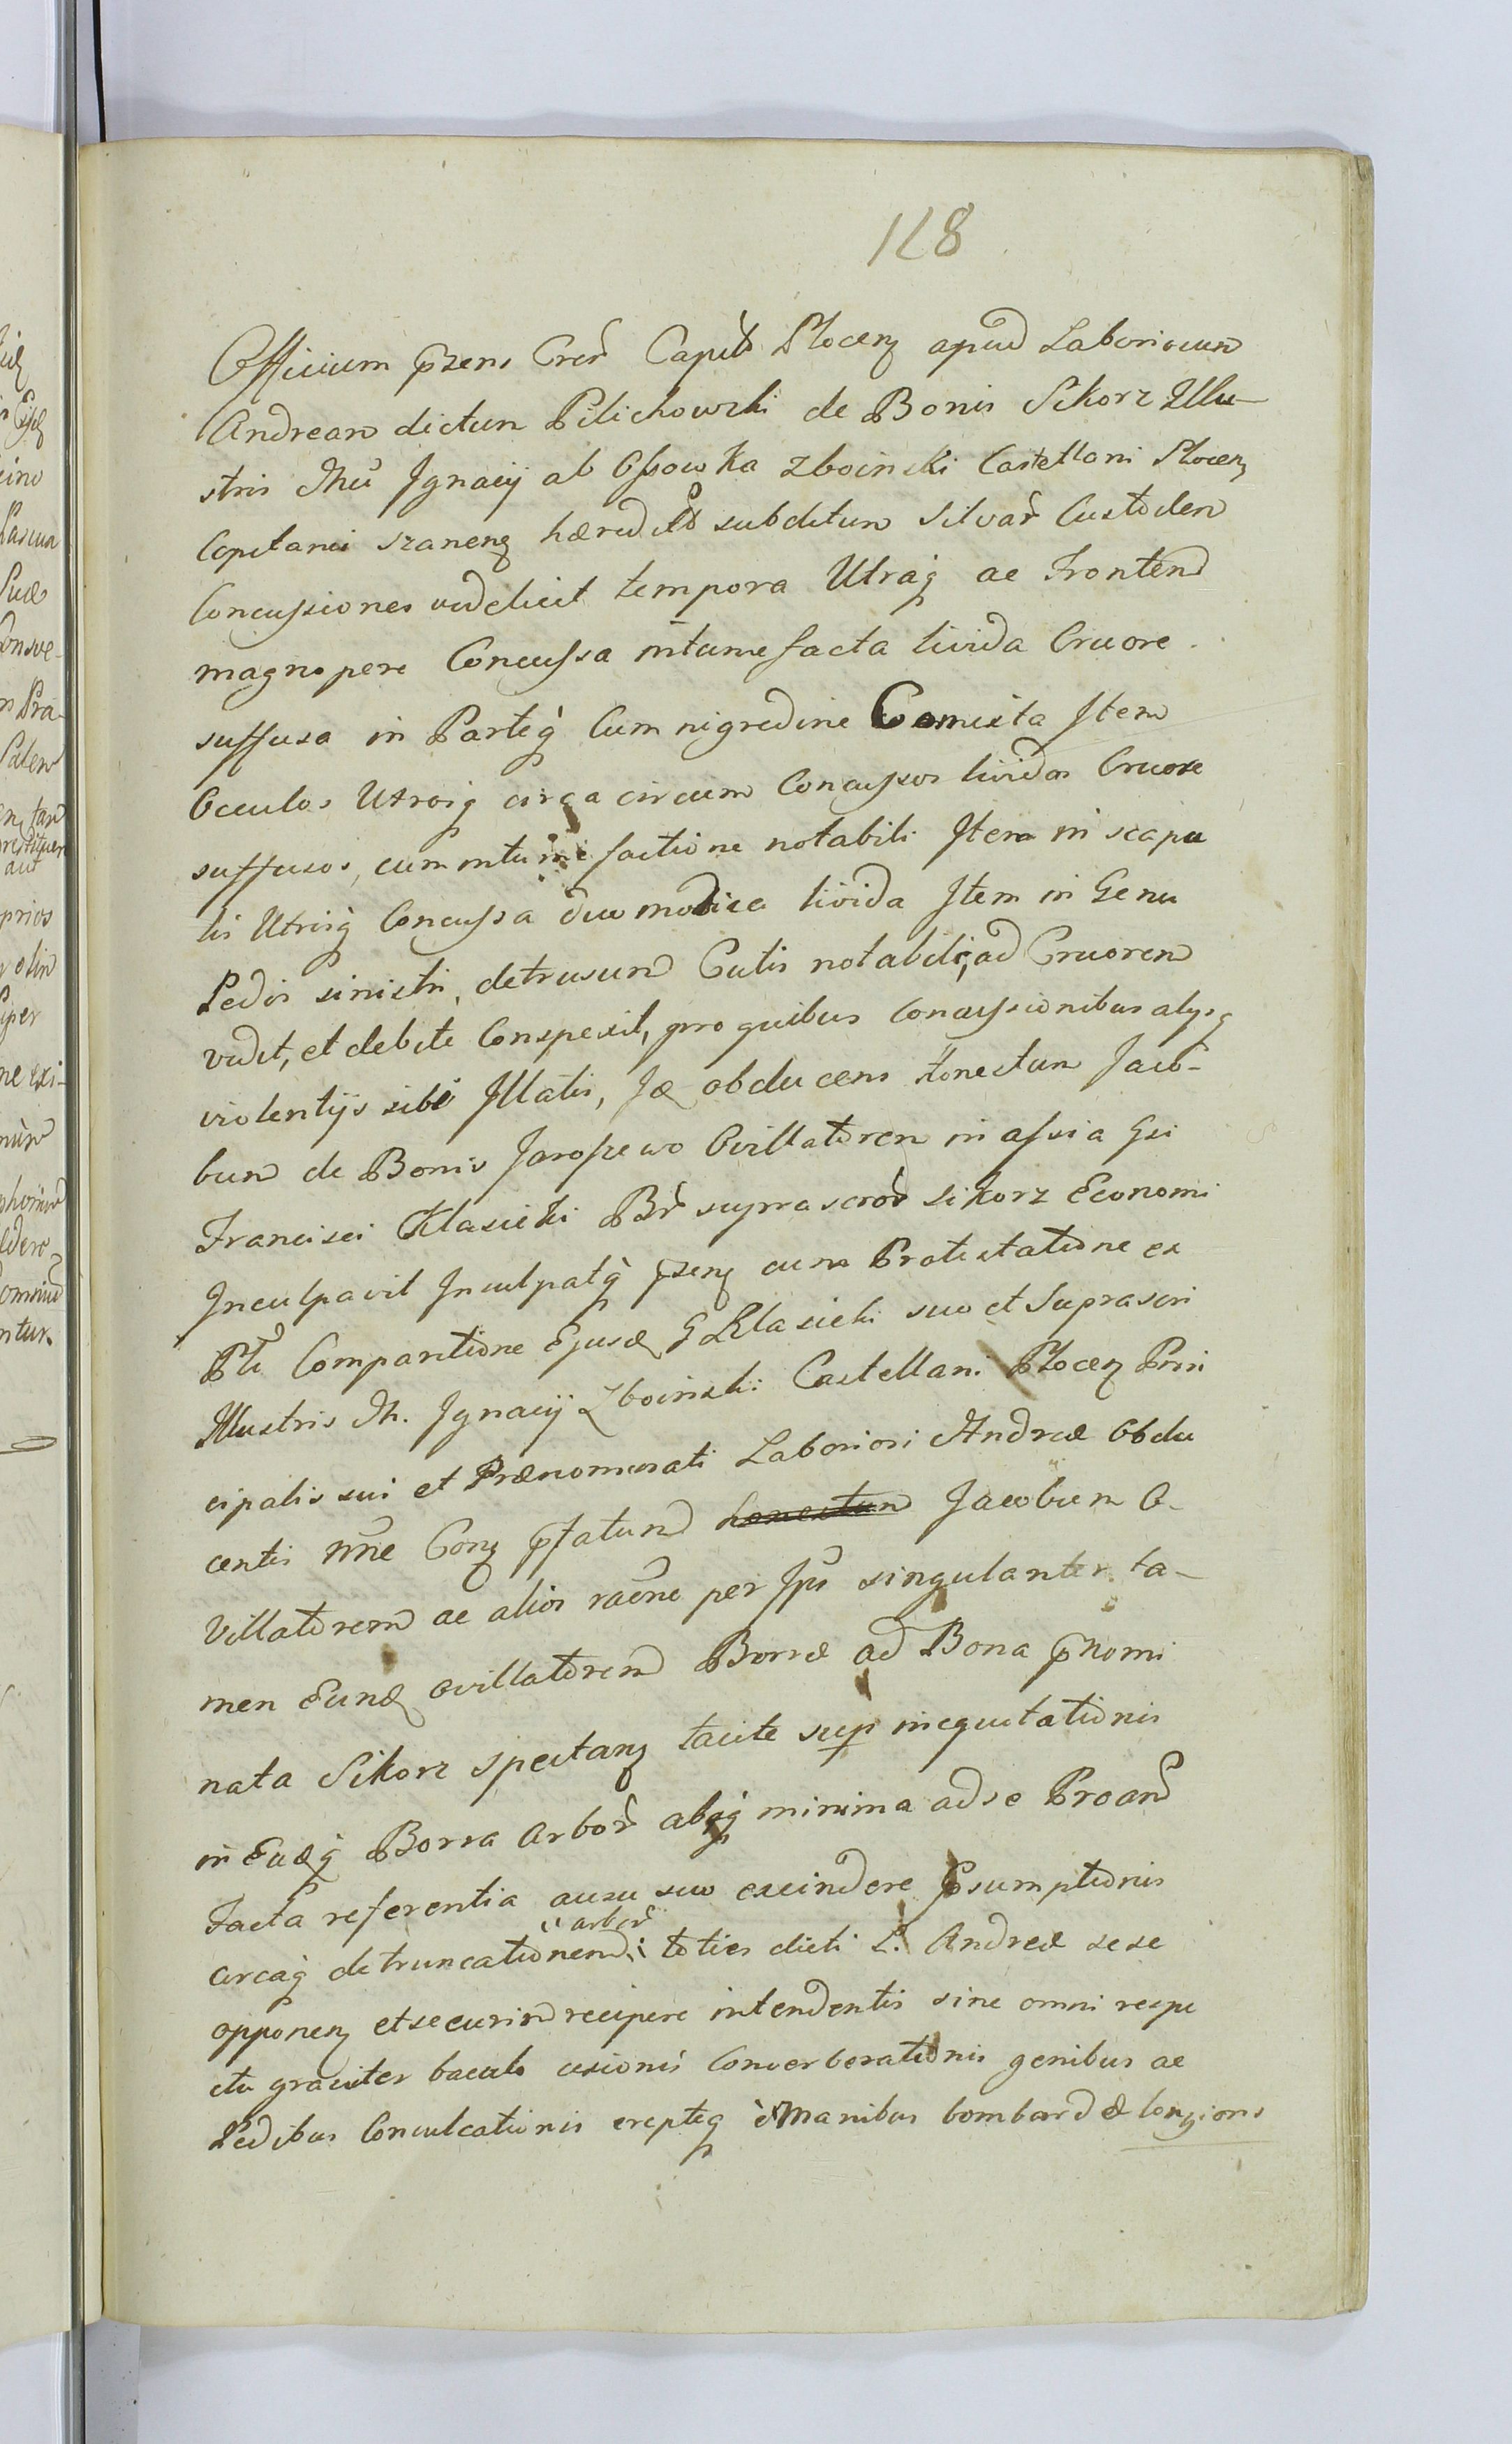 128
Officium przens Cren Capitĺo Plocenȝ apud Laboriosum
Andream dictum Pilichowski de Bonis Sikorz Illu-
stris Mci Ignacij ab Ossowka Zboinski Castellani Plocenȝ
Capitanei Szrenenȝ hæredit subditum Silvar Custodem
Concussiones videlicet tempora Utraqȝ ac Frontem
magnopere Concussa intumefacta livida Cruore
suffusa in Parteqȝ Cum nigredine Comixta Item
Oculos Utrosqȝ circa circum Concussos lividos Cruore
suffusos, cum intumefactione notabili Item in scapu
lis Utrisqȝ Concussa duo modica livida Item in Genu
Pedis sinistri, detrusum Cutis notabile, ad Cruorem
vidit, et debite Conspexit, pro quibus Concussionibus alijsqȝ
violentijs sibi Illatis, Idȝ obducens Honestum Jaco-
bum de Bonis Jaroszewo Ovillatorem in assia Gsi
Francisci Klasicki Br suprascror Sikorz Economi
Inculpavit Inculpatqȝ przenȝ cum Protestatione ex
Pti Comparitione Ejusdȝ G Klasicki suo et Suprascri
Illustris M. Ignacij Zboinski Castellani Plocenȝ Prin
cipalis sui et Prænominati Laboriosi Andreæ Obdu
centis nne Conȝ pfatum honestum Jacobum O-
villatorem ac alios raone per Ips singulariter ta-
men Eundȝ ovillatorem Borræ ad Bona pnomi
nata Sikorz spectanȝ tacite sup inequitationis
in Eadqȝ Borra arbor absqȝ minima ad se Proand
Facta referentia ausu suo exeindere Psumptionis
circaqȝ detruncationem arbor toties dicti L. Andreæ sese
opponenȝ et securim recipere intendentis sine omni respe
ctu graviter baculo cæsionis Converberationis genibus ac
Pedibus Conculcationis ereptæqȝ è Manibus bombardæ longioris